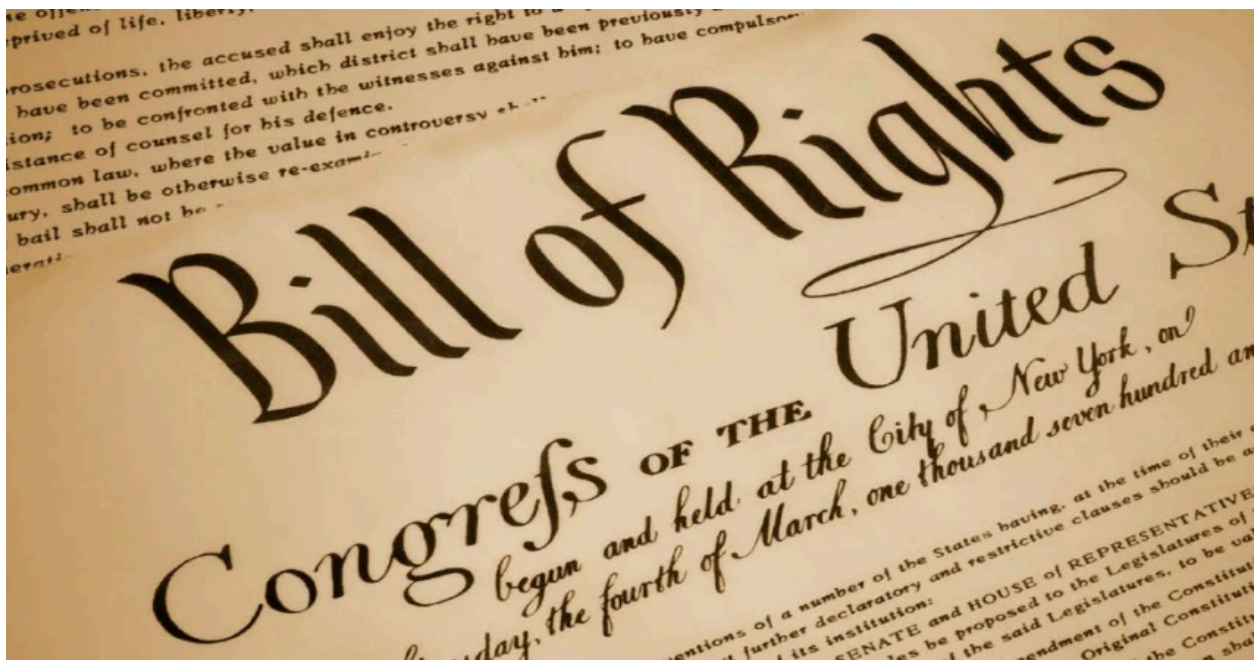 prived of life, liberty,
rosecutions, the accused shall enjoy the right to a
have been committed, which district shall have been previously
ion; to be confronted with the witnesses against him; to have compulso
istance of counsel for his defence.
ommon law, where the value in controversy shall
ury, shall be otherwise re-exami
bail shall not be
Bill of Rights
Congreſs OF THE United St
begun and held at the City of New York, on
sday, the fourth of March, one thousand seven hundred an
ventions of a number of the States having, at the time of their
further declaratory and restrictive clauses should be a
its institution:
SENATE and HOUSE of REPRESENTATIVE
les be proposed to the Legislatures of
the said Legislatures, to be val
endment of the Constitut
Original Constitut
the Constit